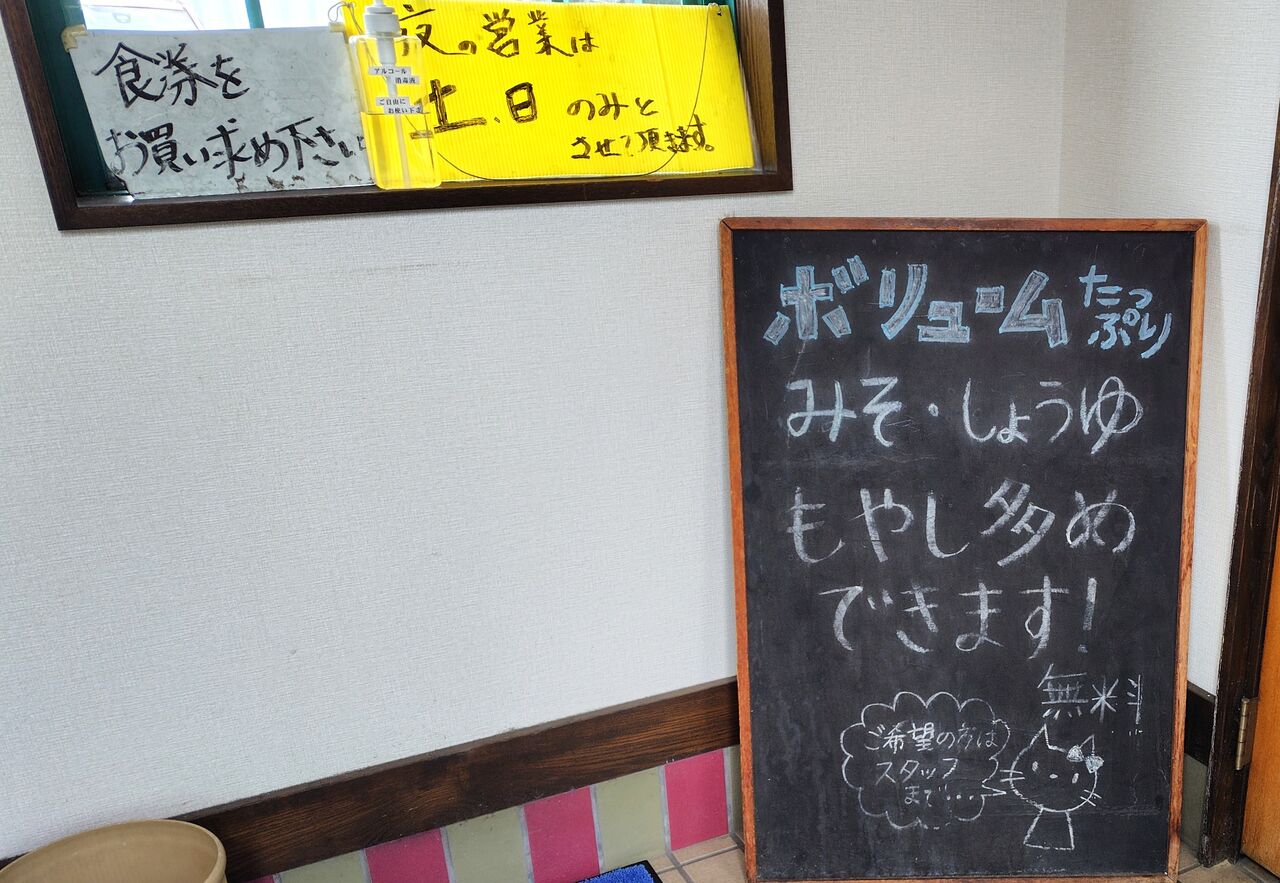 食券を
お買い求め下さい
アルコール
消毒液
ご自由に
お使い下さい
夜の営業は
土、日のみと
させて頂きます。
ボリュームたっぷり
みそ・しょうゆ
もやし多め
できます!
無料
ご希望の方は
スタッフ
まで・・・